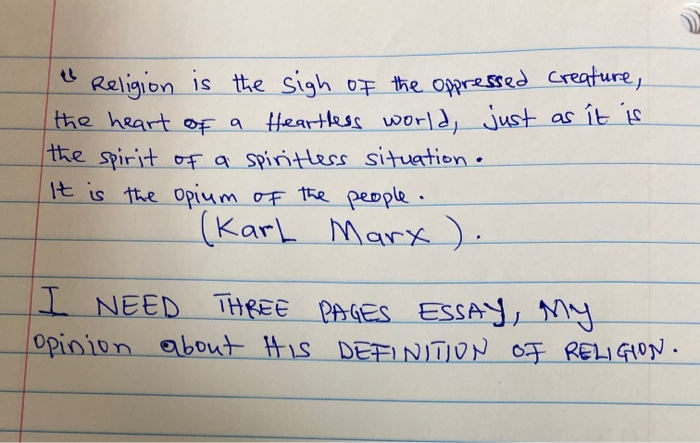 " Religion is the sigh of the oppressed creature,
the heart of a Heartless world, just as it is
the spirit of a spiritless situation.
It is the opium of the people.
(Karl Marx).
I NEED THREE PAGES ESSAY, My
opinion about HIS DEFINITION OF RELIGION.